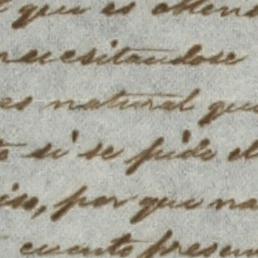 que es
necesitandose
es natural que
si se pide el
por que na
cuanto presen